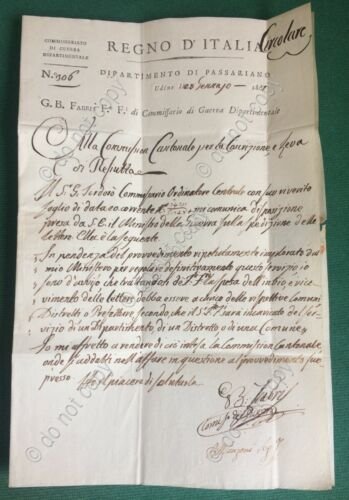 Circolare
COMMISSARIATO
DI GUERRA
DIPARTIMENTALE
REGNO D'ITALIA
N.° 906
DIPARTIMENTO DI PASSARIANO
Udine Gennajo
G. B. FABRIS F. F. di Commissario di Guerra Dipartimentale
Alla Commission Cantonale per la Coscrizione e Leva
di Resiutta
Il S. G. Commissario Ordinatore Centrale con suo riverito
foglio di data corrente mi comunica disposizione
presa da S. E. il Ministro della Guerra sulla spedizione delle
lettere Ella è la seguente
In pendenza del provvedimento ripetutamente implorato dal
mio Ministero per regolare definitivamente questo servizio
sono d'avviso che trattandosi la spesa dell'invio e rice
vimento delle lettere debba essere a carico delle rispettive Comuni
Distretto o Prefetture secondo che il sarà incaricato del Ser
vizio di un Dipartimento di un Distretto o di una Comune
Io mi affretto a rendere di ciò intesa la Commission Cantonale
onde s'addatti nell'affare in questione al provvedimento su
presso
Ho il piacere di salutarla
G B Fabris
do not copy